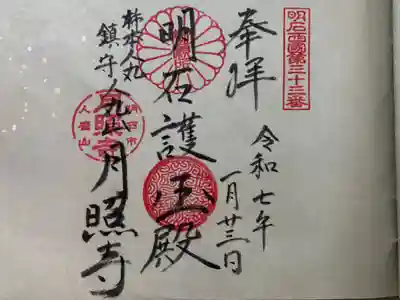 明石西國第三十三番
奉拝
令和七年
一月廿三日
明石護国殿
柿本人丸
鎮守
人丸山月照寺
明石市
月照寺
人麿山